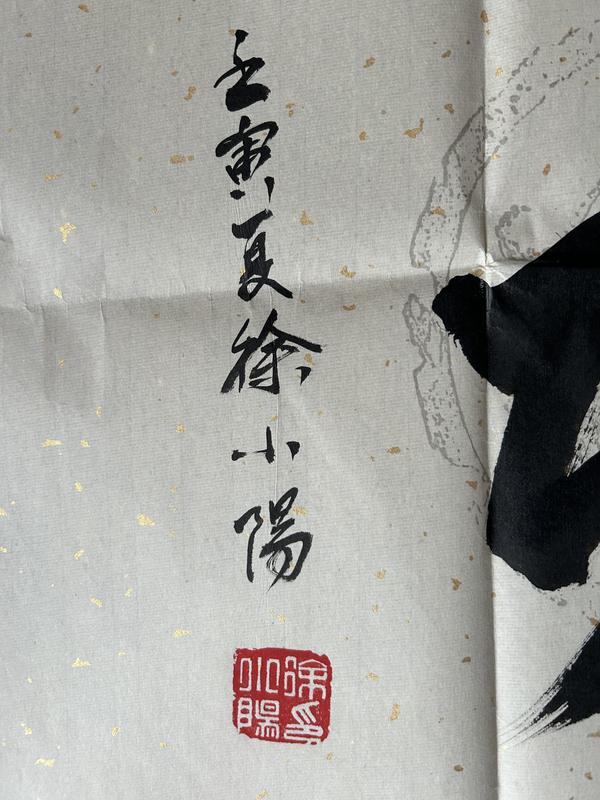 壬寅夏徐小陽
徐印
小陽